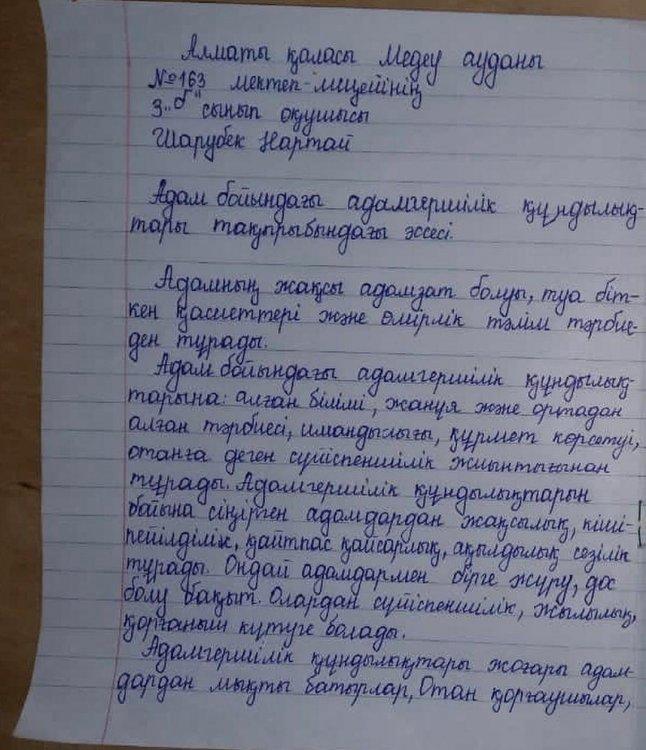 Алматы қаласы Медеу ауданы
№163 мектеп-лицейінің
3 "б" сынып оқушысы
Шарубек Нартай
Адам бойындағы адамгершілік құндылық-
тары тақырыбындағы эссесі.
Адамның жақсы адамзат болуы, туа біт-
кен қасиеттері және өмірлік тәлім тәрбие-
ден тұрады.
Адам бойындағы адамгершілік құндылық-
тарына: алған білімі, жанұя және ортадан
алған тәрбиесі, имандылығы, құрмет көрсетуі,
отанға деген сүйіспеншілік жиынтығынан
тұрады. Адамгершілік құндылықтарын
бойына сіңірген адамдардан жақсылық, кіші-
пейілділік, қайтпас қайсарлық, ақылдылық сезіліп
тұрады. Ондай адамдармен бірге жүру, дос
болу бақыт. Олардан сүйіспеншілік, жылылық,
қорғаныш күтуге болады.
Адамгершілік құндылықтары жоғары адам-
дардан мықты батырлар, Отан қорғаушылар,